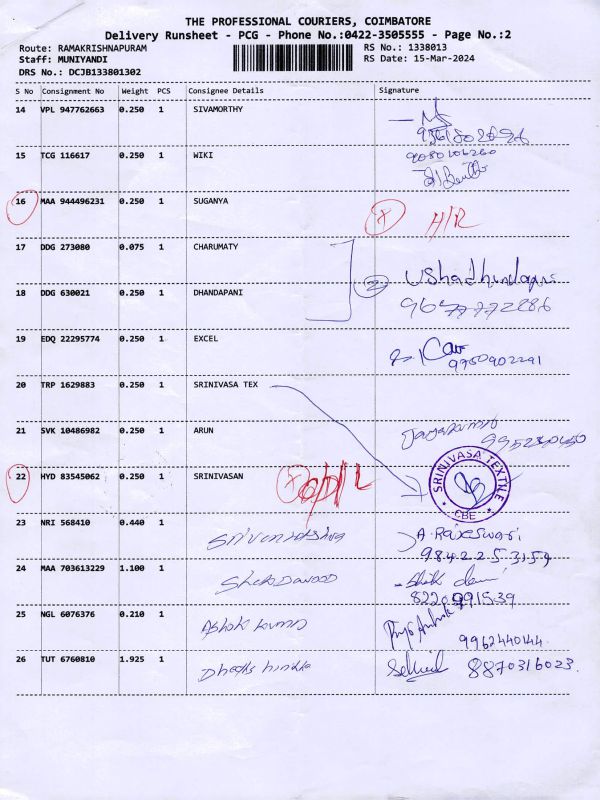 THE PROFESSIONAL COURIERS, COIMBATORE
Delivery Runsheet - PCG - Phone No.:0422-3505555 - Page No.:2
Route: RAMAKRISHNAPURAM RS No.: 1338013
Staff: MUNIYANDI RS Date: 15-Mar-2024
DRS No.: DCJB133801302
S No Consignment No Weight PCS Consignee Details Signature
14 VPL 947762663 0.250 1 SIVAMORTHY
15 TCG 116617 0.250 1 WIKI
9080106260
16 MAA 944496231 0.250 1 SUGANYA
17 DDG 273080 0.075 1 CHARUMATY
2
18 DDG 630021 0.250 1 DHANDAPANI
19 EDQ 22295774 0.250 1 EXCEL
9750902291
20 TRP 1629883 0.250 1 SRINIVASA TEX
21 SVK 10486982 0.250 1 ARUN
22 HYD 83545062 0.250 1 SRINIVASAN
SRINIVASA TEXTILE
CBE
23 NRI 568410 0.440 1 A. Rajeswari
9842253159
24 MAA 703613229 1.100 1
8220991539
25 NGL 6076376 0.210 1 Ashok kumar
9962440144
26 TUT 6760810 1.925 1 8870316023